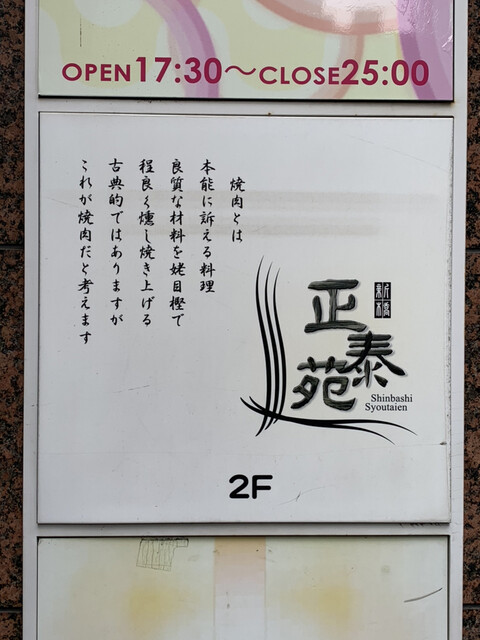 OPEN17:30〜CLOSE25:00
焼肉とは
本能に訴える料理
良質な材料を姥目樫で
程良く燻し焼き上げる
古典的ではありますが
これが焼肉だと考えます
新橋
正泰苑
Shinbashi
Syoutaien
2F